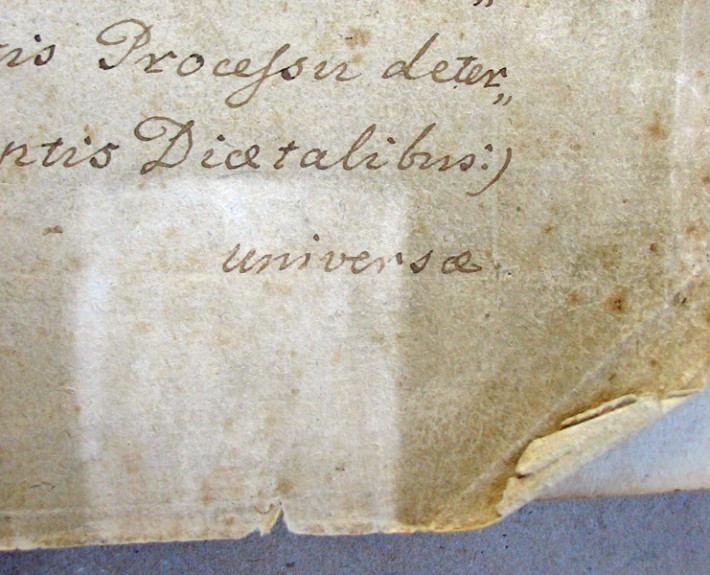 tis Processu deter„
ntis Diætalibus:)
universæ